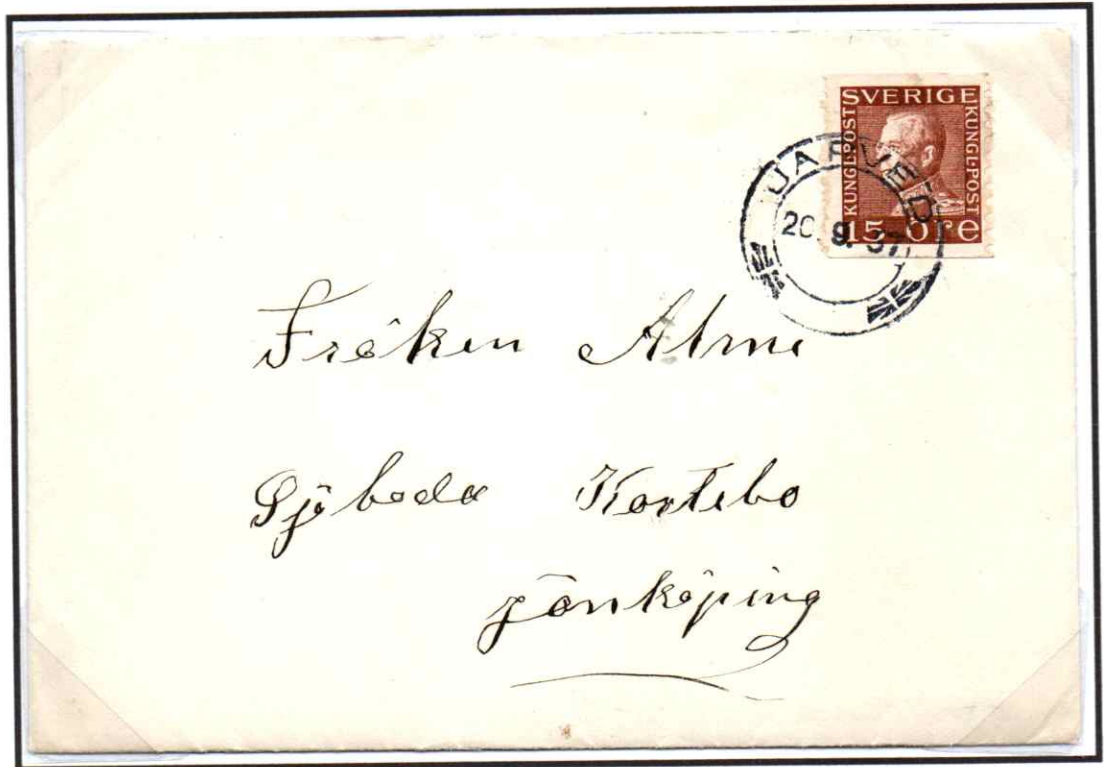 SVERIGE
KUNGL.POST
KUNGL.POST
15 ÖRE
JÄRVED
20.9.37
Fröken Alme
Sjöboda Kortebo
Jönköping